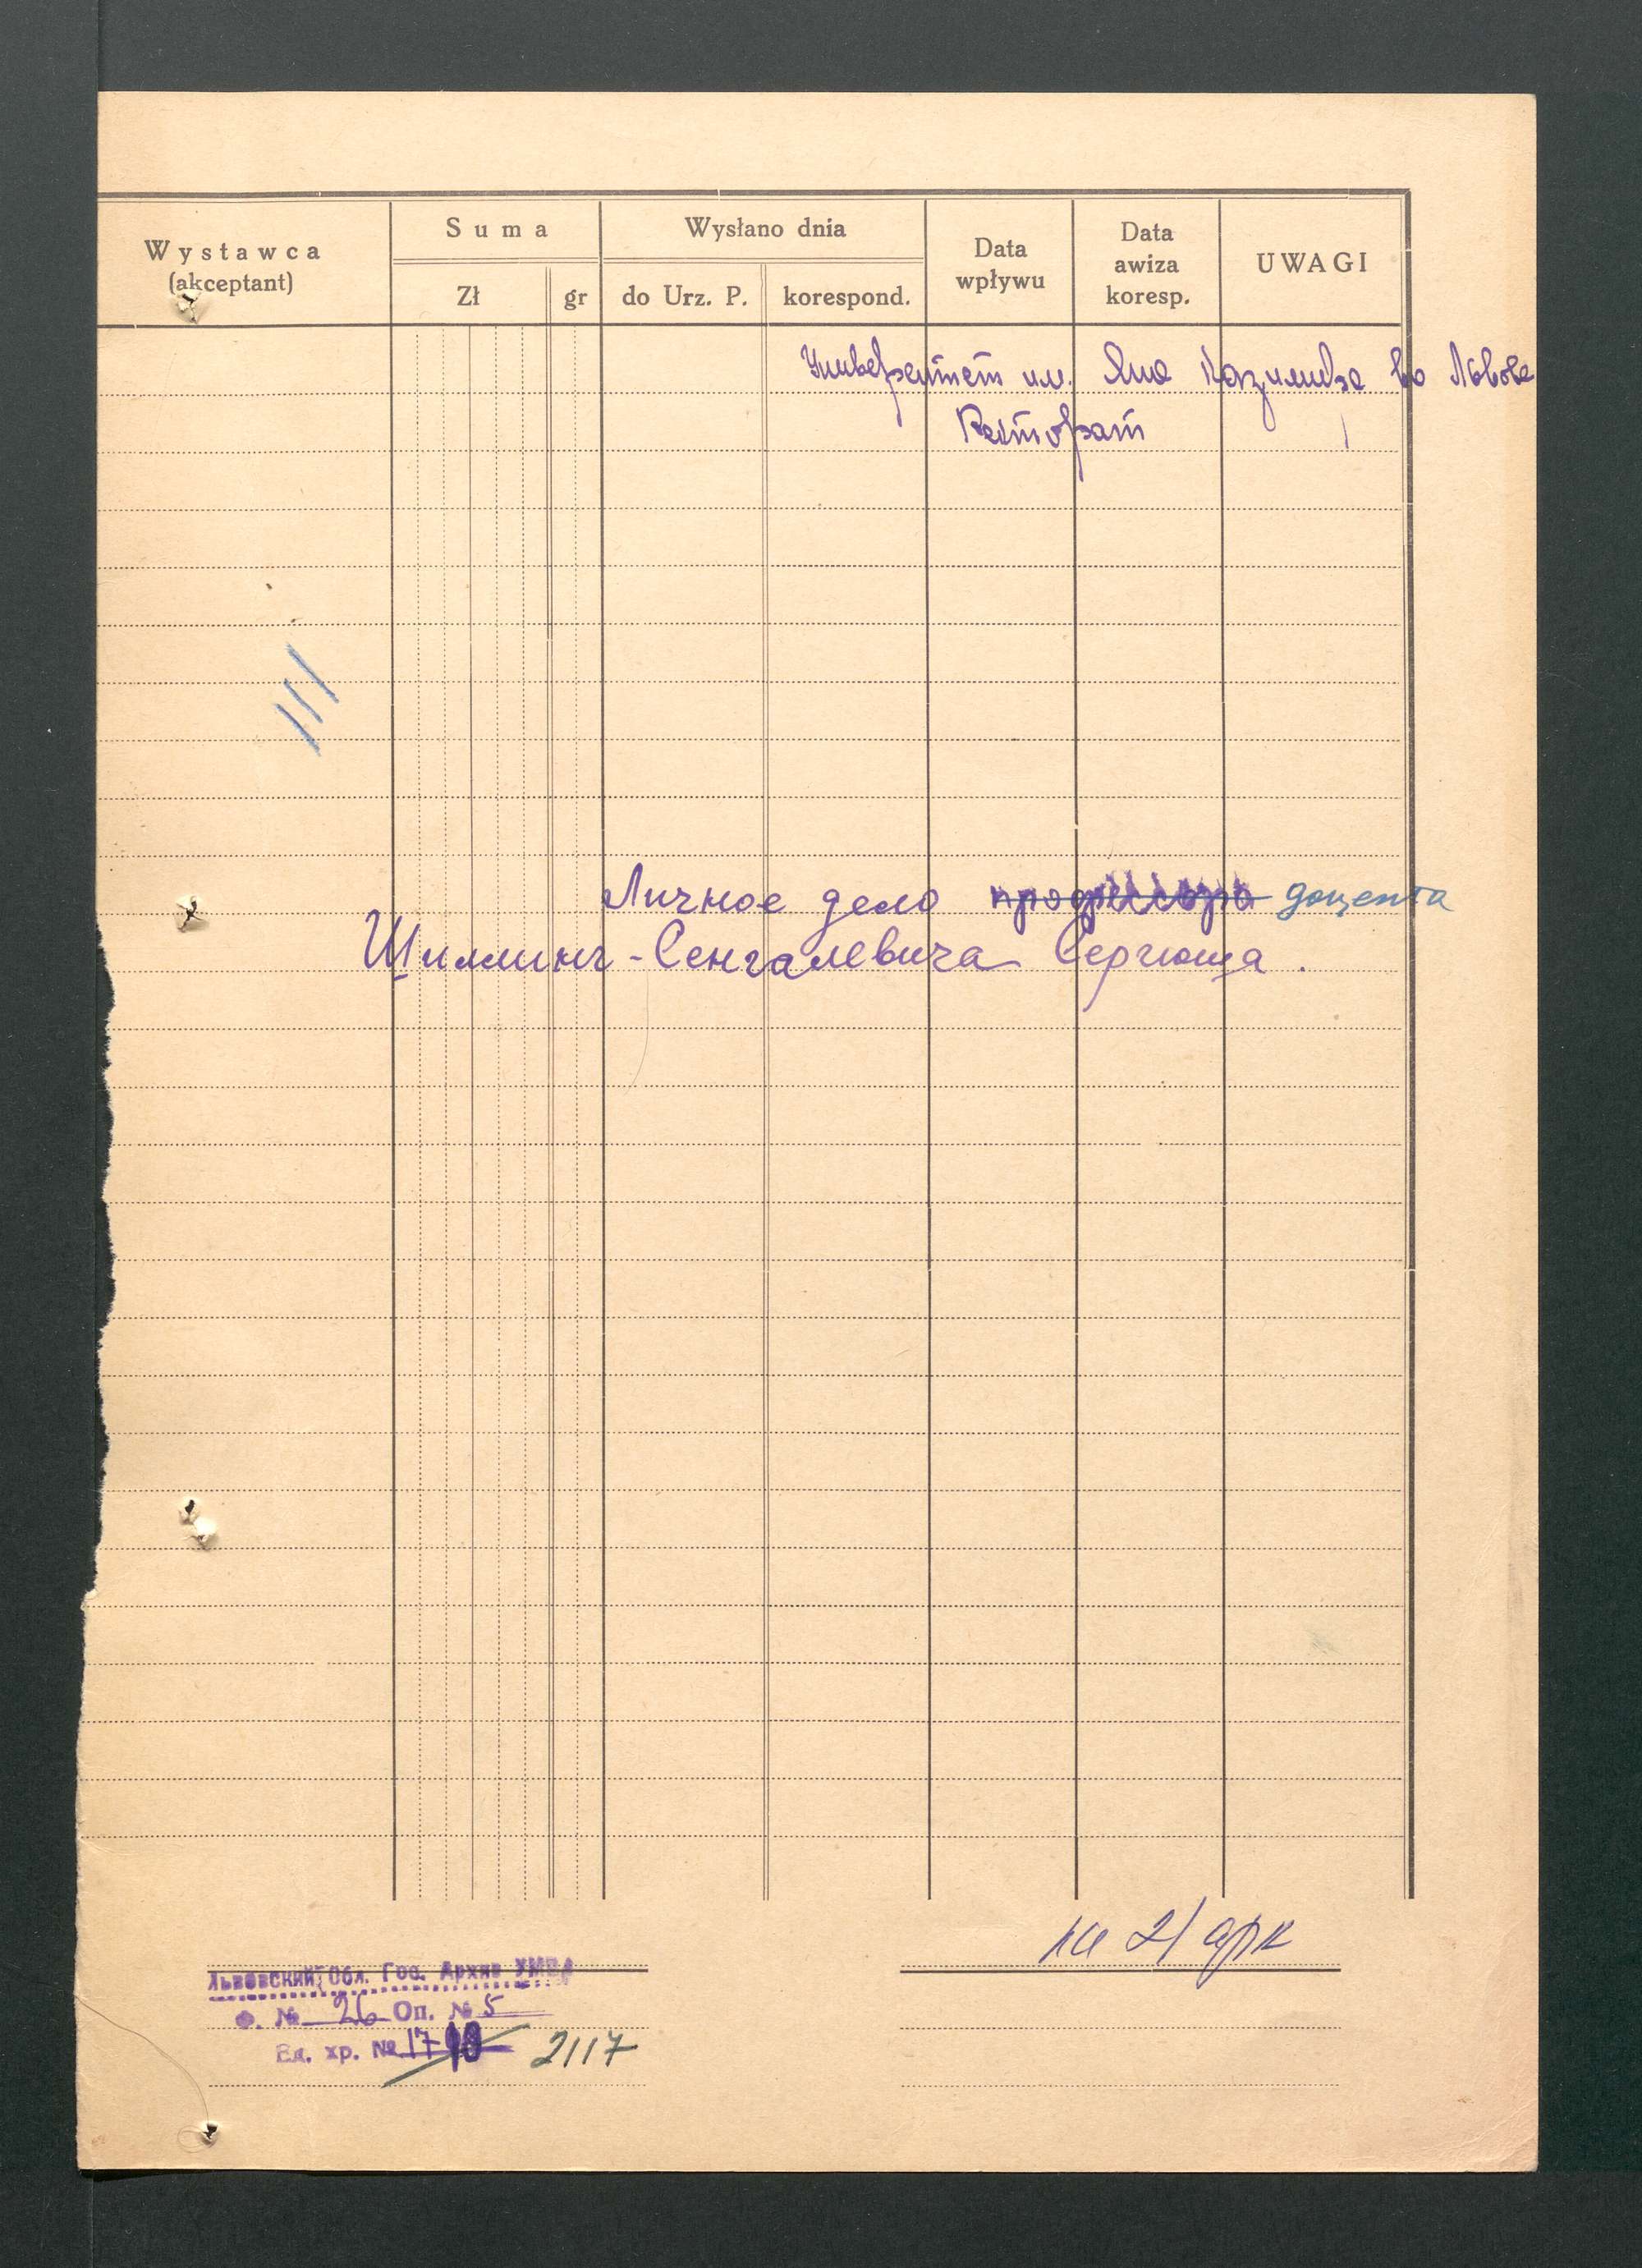 Wystawca
(akceptant)
Suma
Zł gr
Wysłano dnia
do Urz. P. korespond.
Data
wpływu
Data
awiza
koresp.
UWAGI
Университет им. Яна Казимира во Львове
Ректорат
Личное дело профессора доцента
Шиллинг-Сенгалевича Сергюша.
на 21 арк
Львовский Обл. Гос. Архив УМВД
Ф. № 26 Оп. № 5
Ед. хр. № 2117